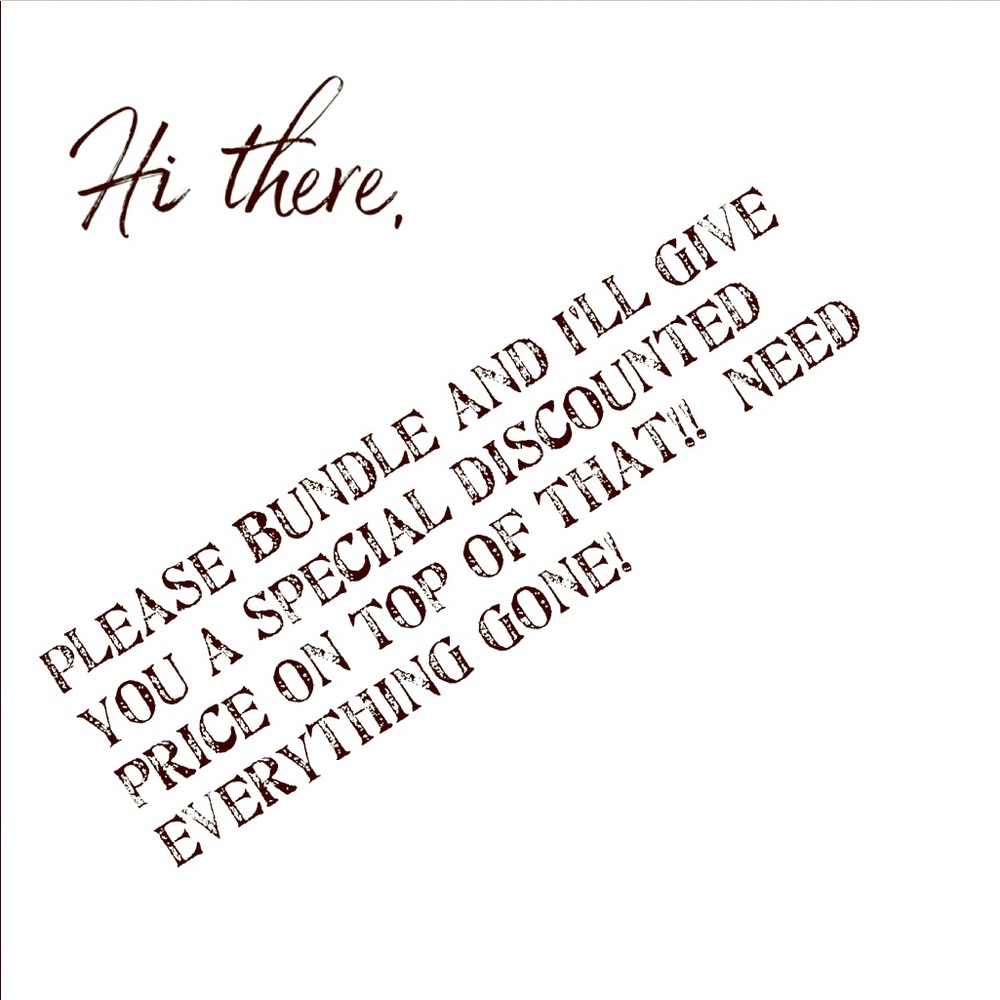 Hi there,
PLEASE BUNDLE AND I'LL GIVE
YOU A SPECIAL DISCOUNTED
PRICE ON TOP OF THAT!! NEED
EVERYTHING GONE!